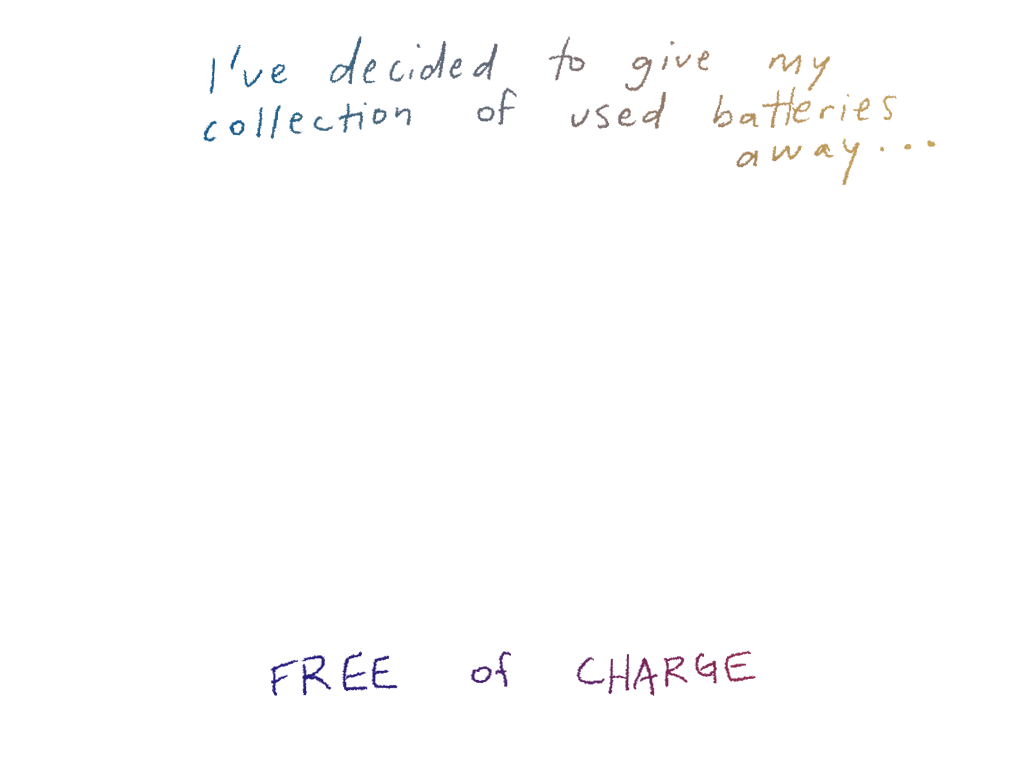 I've decided to give my
collection of used batteries
away...
FREE of CHARGE